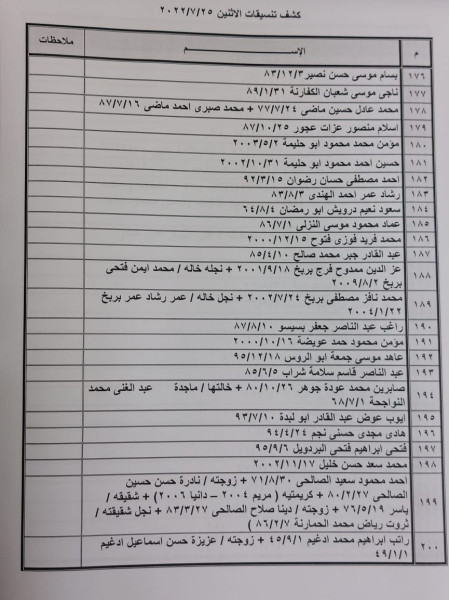 كشف تنسيقات الاثنين ٢٠٢٢/٧/٢٥
م الإســـم ملاحظات
١٧٦ بسام موسى حسن نصير ٨٣/١٢/٣
١٧٧ ناجى موسى شعبان الكفارنة ٨٩/١/٣١
١٧٨ محمد عادل حسين ماضى ٧٧/٧/٢٤ + محمد صبرى احمد ماضى ٨٧/٧/١٦
١٧٩ اسلام منصور عزات عجور ٨٧/١٠/٢٥
١٨٠ مؤمن محمد محمود ابو حليمة ٢٠٠٣/٥/٢
١٨١ حسين احمد محمود ابو حليمة ٢٠٠٢/١٠/٣١
١٨٢ احمد مصطفى حسان رضوان ٩٢/٣/١٥
١٨٣ رشاد عمر احمد الهندى ٨٣/٨/٣
١٨٤ سعود نعيم درويش ابو رمضان ٦٤/٨/٤
١٨٥ عماد محمود موسى النزلى ٨٦/٧/١
١٨٦ محمد فريد فوزى فتوح ٢٠٠٠/١٢/١٥
١٨٧ عبد القادر جبر محمد صالح ٨٥/٤/١٠
١٨٨ عز الدين ممدوح فرج بربخ ٢٠٠١/٩/١٨ + نجله خاله / محمد ايمن فتحى
بربخ ٢٠٠٩/٨/٢
١٨٩ محمد نافز مصطفى بربخ ٢٠٠٢/٧/٢٤ + نجل خاله / عمر رشاد عمر بربخ
٢٠٠٤/١/٢٢
١٩٠ راغب عبد الناصر جعفر بسيسو ٨٧/٨/١٠
١٩١ مؤمن محمود حمد عويضة ٢٠٠٠/١٠/١٦
١٩٢ عاهد موسى جمعة ابو الروس ٩٥/١٢/١٨
١٩٣ عبد الناصر قاسم سلامة شراب ٨٥/٦/٥
١٩٤ صابرين محمد عودة جوهر ٨٠/١٠/٢٦ + خالتها / ماجدة عبد الغنى محمد
النواجحة ٦٨/٧/١
١٩٥ ايوب عوض عبد القادر ابو لبدة ٩٣/٧/١٠
١٩٦ هادى مجدى حسنى نجم ٩٤/٤/٢٤
١٩٧ فتحى ابراهيم فتحى البردويل ٩٥/٩/٦
١٩٨ محمد سعد حسن خليل ٢٠٠٢/١١/١٧
١٩٩ احمد محمود سعيد الصالحى ٧١/٨/٣٠ + زوجته / نادرة حسن حسين
الصالحى ٨٠/٢/٢٧ + كريمتيه ( مريم ٢٠٠٤ – دانيا ٢٠٠٦ ) + شقيقه /
ياسر ٧٦/٥/١٩ + زوجته / دينا صلاح الصالحى ٨٣/٣/٢٧ + نجل شقيقته /
ثروت رياض محمد الحمارنة ٨٦/٢/٧ )
٢٠٠ راتب ابراهيم محمد ادغيم ٤٥/٩/١ + زوجته / عزيزة حسن اسماعيل ادغيم
٤٩/١/١